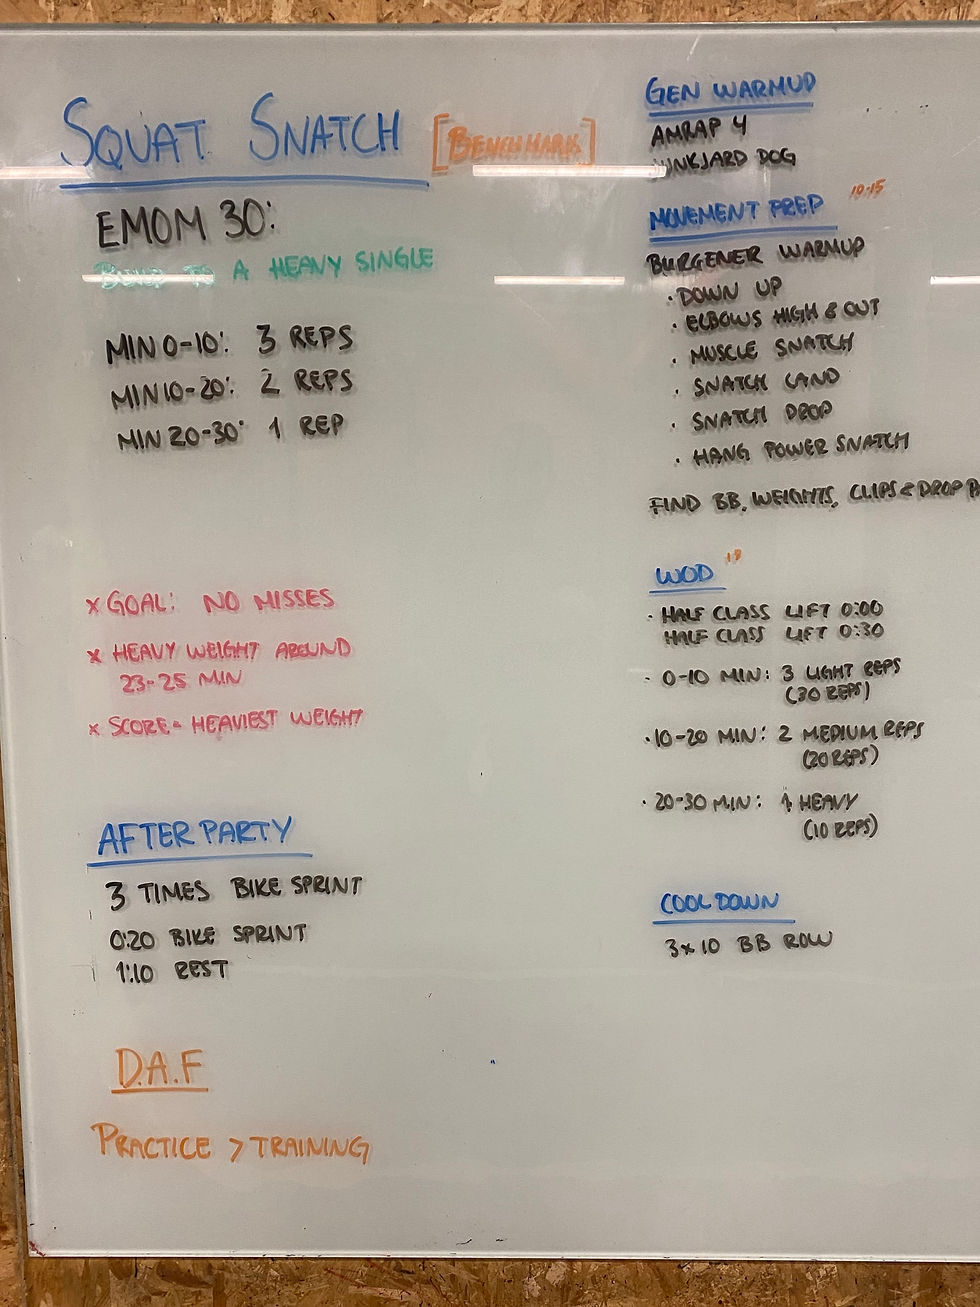 SQUAT SNATCH [BENCHMARK]
EMOM 30:
BUILD TO A HEAVY SINGLE
MIN 0-10: 3 REPS
MIN 10-20: 2 REPS
MIN 20-30: 1 REP
x GOAL: NO MISSES
x HEAVY WEIGHT AROUND
23-25 MIN
x SCORE = HEAVIEST WEIGHT
AFTER PARTY
3 TIMES BIKE SPRINT
0:20 BIKE SPRINT
1:10 REST
D.A.F
PRACTICE > TRAINING
GEN WARMUP
AMRAP 4
JUNKJARD DOG
MOVEMENT PREP 10-15
BURGENER WARMUP
· DOWN UP
· ELBOWS HIGH & OUT
· MUSCLE SNATCH
· SNATCH LAND
· SNATCH DROP
· HANG POWER SNATCH
FIND BB, WEIGHTS, CLIPS & DROP
WOD 18
· HALF CLASS LIFT 0:00
HALF CLASS LIFT 0:30
· 0-10 MIN: 3 LIGHT REPS
(30 REPS)
· 10-20 MIN: 2 MEDIUM REPS
(20 REPS)
· 20-30 MIN: 1 HEAVY
(10 REPS)
COOL DOWN
3x10 BB ROW